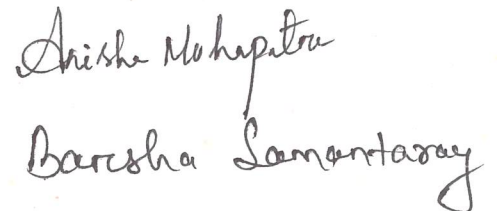 Anisha Mohapatra
Barsha Samantaray